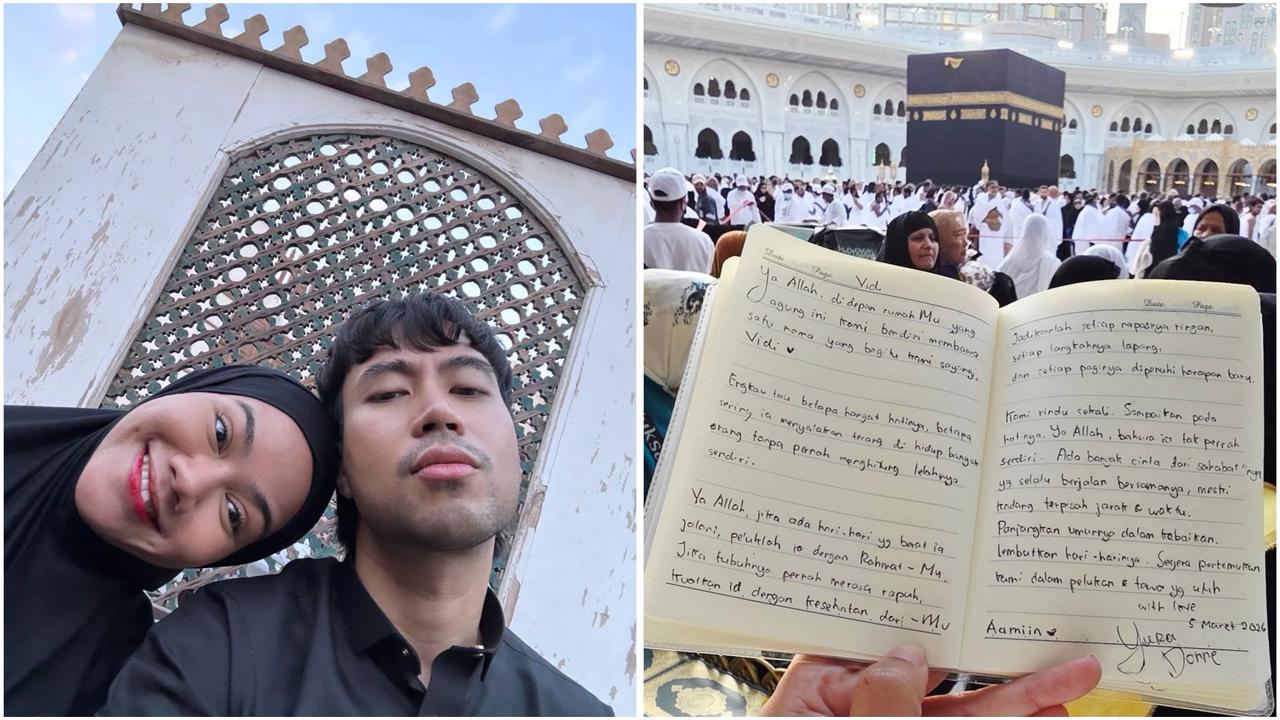 Date. Page.
Vidi
Ya Allah, di depan rumah Mu yang
agung ini kami berdiri membawa
satu nama yang begitu kami sayangi.
Vidi
Engkau tau betapa hangat hatinya, betapa
sering ia menyalakan terang di hidup banyak
orang tanpa pernah menghitung lelahnya
sendiri.
Ya Allah, jika ada hari-hari yg berat ia
jalani, peluklah ia dengan Rahmat-Mu.
Jika tubuhnya pernah merasa rapuh,
kuatkan ia dengan kesehatan dari-Mu
Date. Page.
Jadikanlah setiap napasnya ringan,
setiap langkahnya lapang,
dan setiap paginya dipenuhi harapan baru.
Kami rindu sekali. Sampaikan pada
hatinya. Ya Allah, bahwa ia tak pernah
sendiri. Ada banyak cinta dari sahabat"nya
yg selalu berjalan bersamanya, meski
kadang terpisah jarak & waktu.
Panjangkan umurnya dalam kebaikan.
Lembutkan hari-harinya. Segera pertemukan
kami dalam pelukan & tawa yg utuh
with love
5 Maret 2026
Aamiin
Yura
Donne